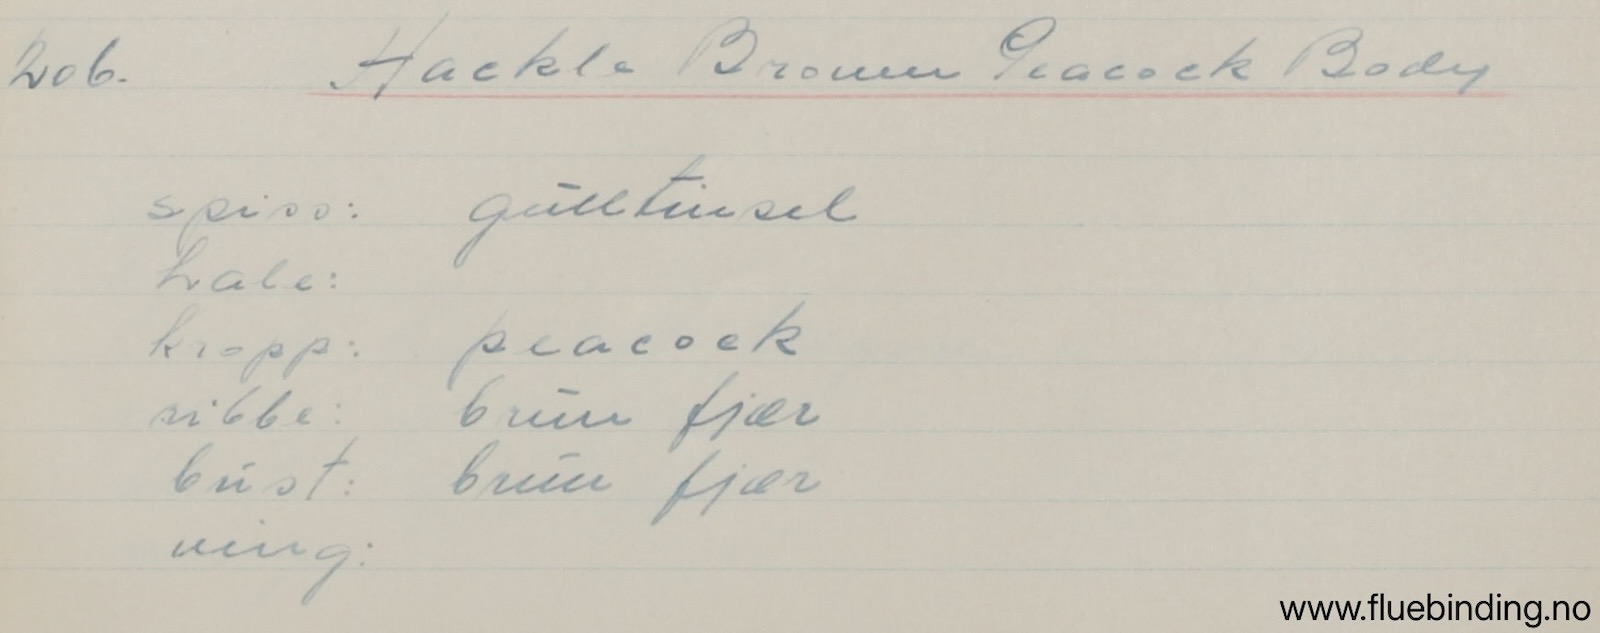 206. Hackle Brown Peacock Body
spiss: gulltinsel
hale:
kropp: peacock
ribbe: brun fjær
bust: brun fjær
ving:
www.fluebinding.no